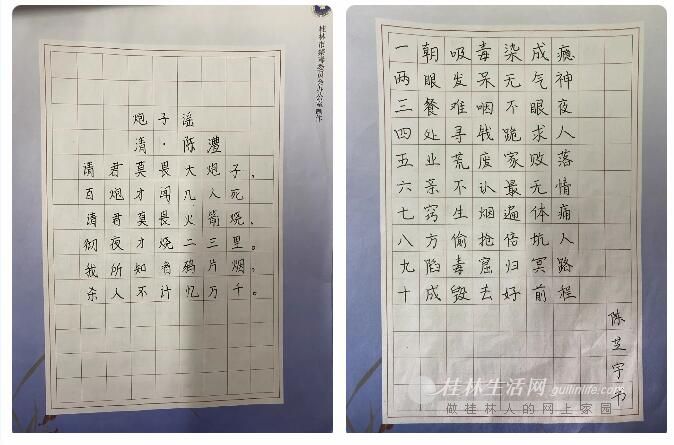 桂林市禁毒委员会办公室制作
炮子谣
清·陈澧
请君莫畏大炮子，
百炮才闻几人死
请君莫畏火箭烧，
彻夜才烧二三里。
我所知者鸦片烟，
杀人不计忆万千。
一朝吸毒染成瘾
两眼发呆无气神
三餐难咽不眼夜
四处寻钱跪求人
五业荒废家败落
六亲不认最无情
七窍生烟遍体痛
八方偷抢倍坑人
九陷毒窟归冥路
十成毁去好前程
陈芝宇书
桂林生活网 guilinlife.com
做桂林人的网上家园